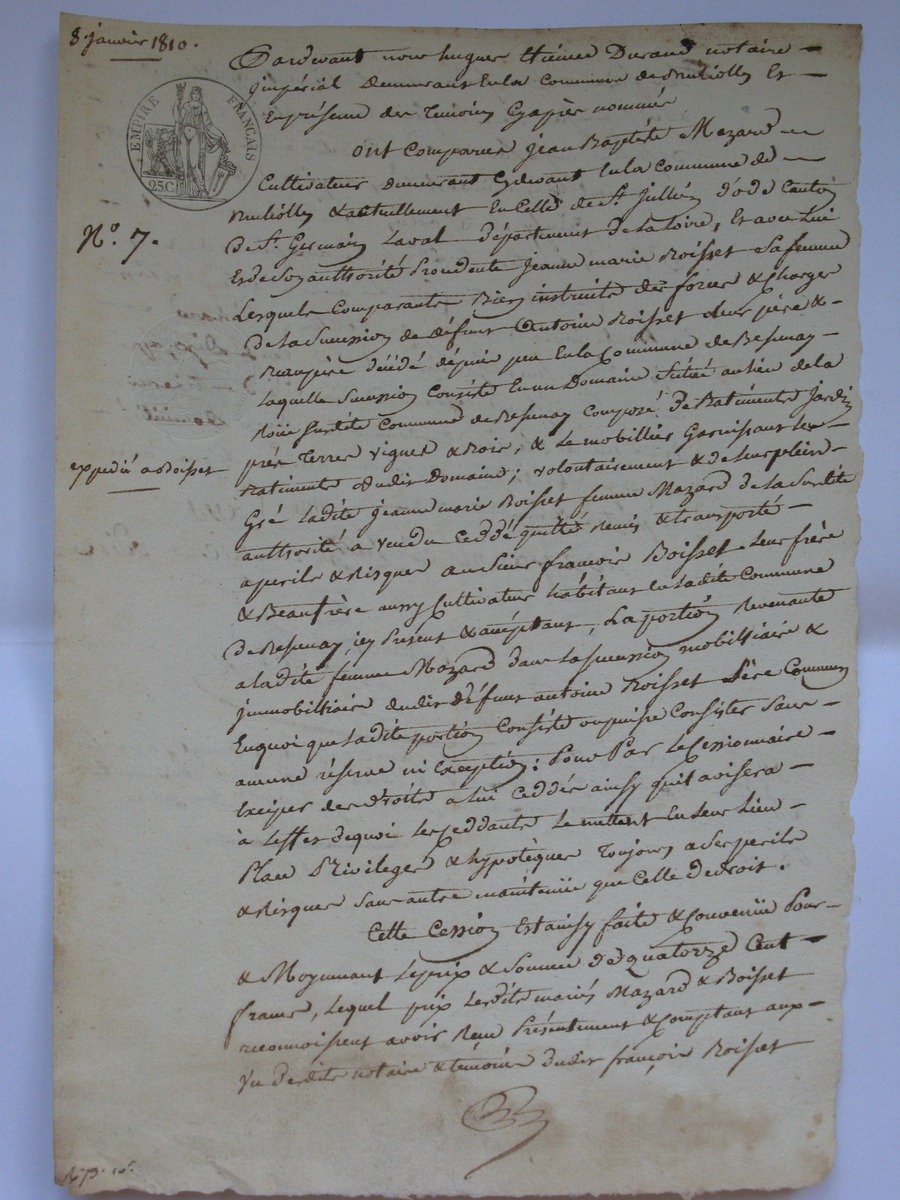 8. janvier 1810.
EMPIRE FRANÇAIS
25C
No. 7.
expedié a Boisset
Pardevant nous hugues Etienne Durand notaire
impérial demeurant En la Commune de Et
En présence des Temoins Cy après nommés
ont Comparus Jean Baptiste Mazard
Cultivateur demeurant Cydevant En la Commune de
& actuellement En Celle de St. Jullien d'odde Canton
De St. Germain Laval département De la Loire, Et avec Lui
Et de Son authorité Procedente Jeanne marie Boisset Sa femme
Lesquels Comparants Bien instruits des forces & Charges
De la Succession de défunt Antoine Boisset Leur père &
Beaupère décédé depuis peu En la Commune de Bessenay
Laquelle Succession Consiste En un Domaine Situé au lieu de la
Susdite Commune de Bessenay Composé De Batiments Jardin
prés Terres vignes & Bois, & Le mobillier Garnissant Les
Batiments dudit Domaine; volontairement & de Leur plein
Gré Ladite Jeanne marie Boisset femme Mazard de La Susdite
authorité a vendu Ceddé quitté remis & transporté
a perils & Risques au Sieur françois Boisset Leur frère
& Beaufrère aussy Cultivateur habitant En Ladite Commune
De Bessenay, icy Présent & acceptant, La portion Revenante
a ladite femme Mazard dans La Succession mobilliaire &
immobilliaire dudit défunt antoine Boisset Père Commun
En quoi que Ladite portion Consiste ou puisse Consister Sans
aucune réserve ni Exception: Pour Par Le Cessionnaire
Exciper des droits a lui Ceddés ainsy qu'il avisera
à L'effet de quoi Les Ceddants Le mettent En Leur Lieu
Place Privileges & hypotèques Toujours a Ses perils
& Risques Sans autre maintenüe que Celle de droit.
Cette Cession Est ainsy faite & Convenüe Pour
& Moyennant Le prix & Somme de quatorze Cent
francs, Lequel prix Lesdits mariés Mazard & Boisset
reconnoissent avoir Reçu Présentement & Comptant aux
vu desdits notaire & temoins dudit françois Boisset